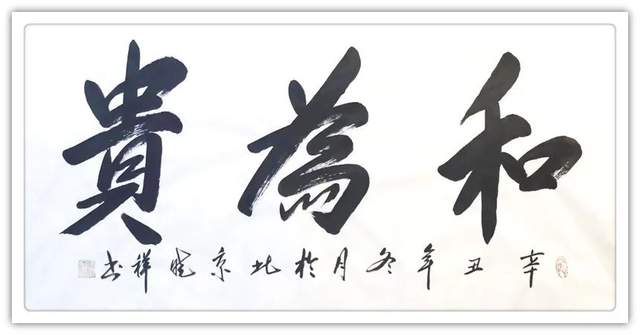 和為貴
辛丑年冬月於北京 晓祥书